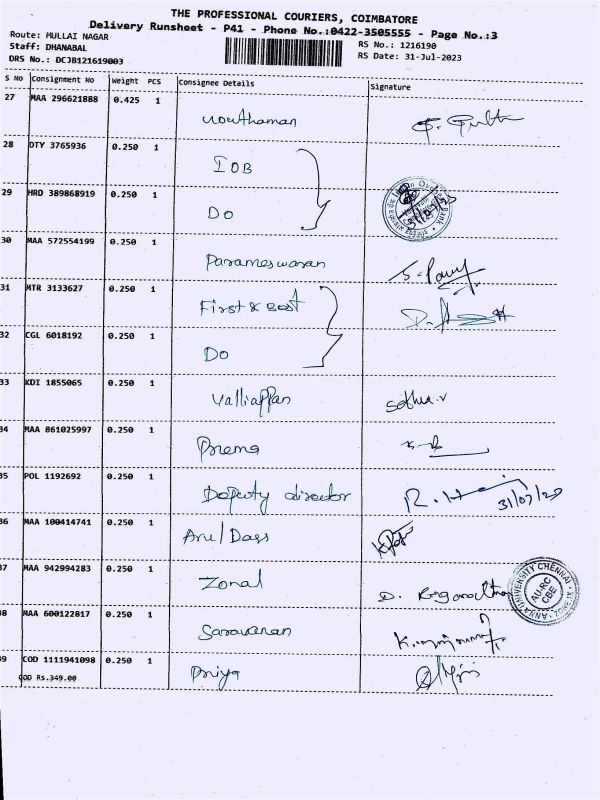 THE PROFESSIONAL COURIERS, COIMBATORE
Delivery Runsheet - P41 - Phone No.:0422-3505555 - Page No.:3
Route: MULLAI NAGAR
Staff: DHANABAL
DRS No.: DCJB121619003
RS No.: 1216190
RS Date: 31-Jul-2023
S NO Consignment No Weight PCS Consignee Details Signature
27 MAA 296621888 0.425 1
28 DTY 3765936 0.250 1 IOB
29 HRD 389868919 0.250 1 Do
30 MAA 572554199 0.250 1 Parameswaran
31 MTR 3133627 0.250 1 First & Best
32 CGL 6018192 0.250 1 Do
33 KDI 1855065 0.250 1 Valliappan
34 MAA 861025997 0.250 1 Prema
35 POL 1192692 0.250 1 Deputy director 31/07/23
36 MAA 100414741 0.250 1 Arul Dass
37 MAA 942994283 0.250 1 Zonal
ANNA UNIVERSITY CHENNAI
AU-RC
CBE
38 MAA 600122817 0.250 1 Saravanan
39 COD 1111941098 0.250 1 Priya
COD Rs.349.00